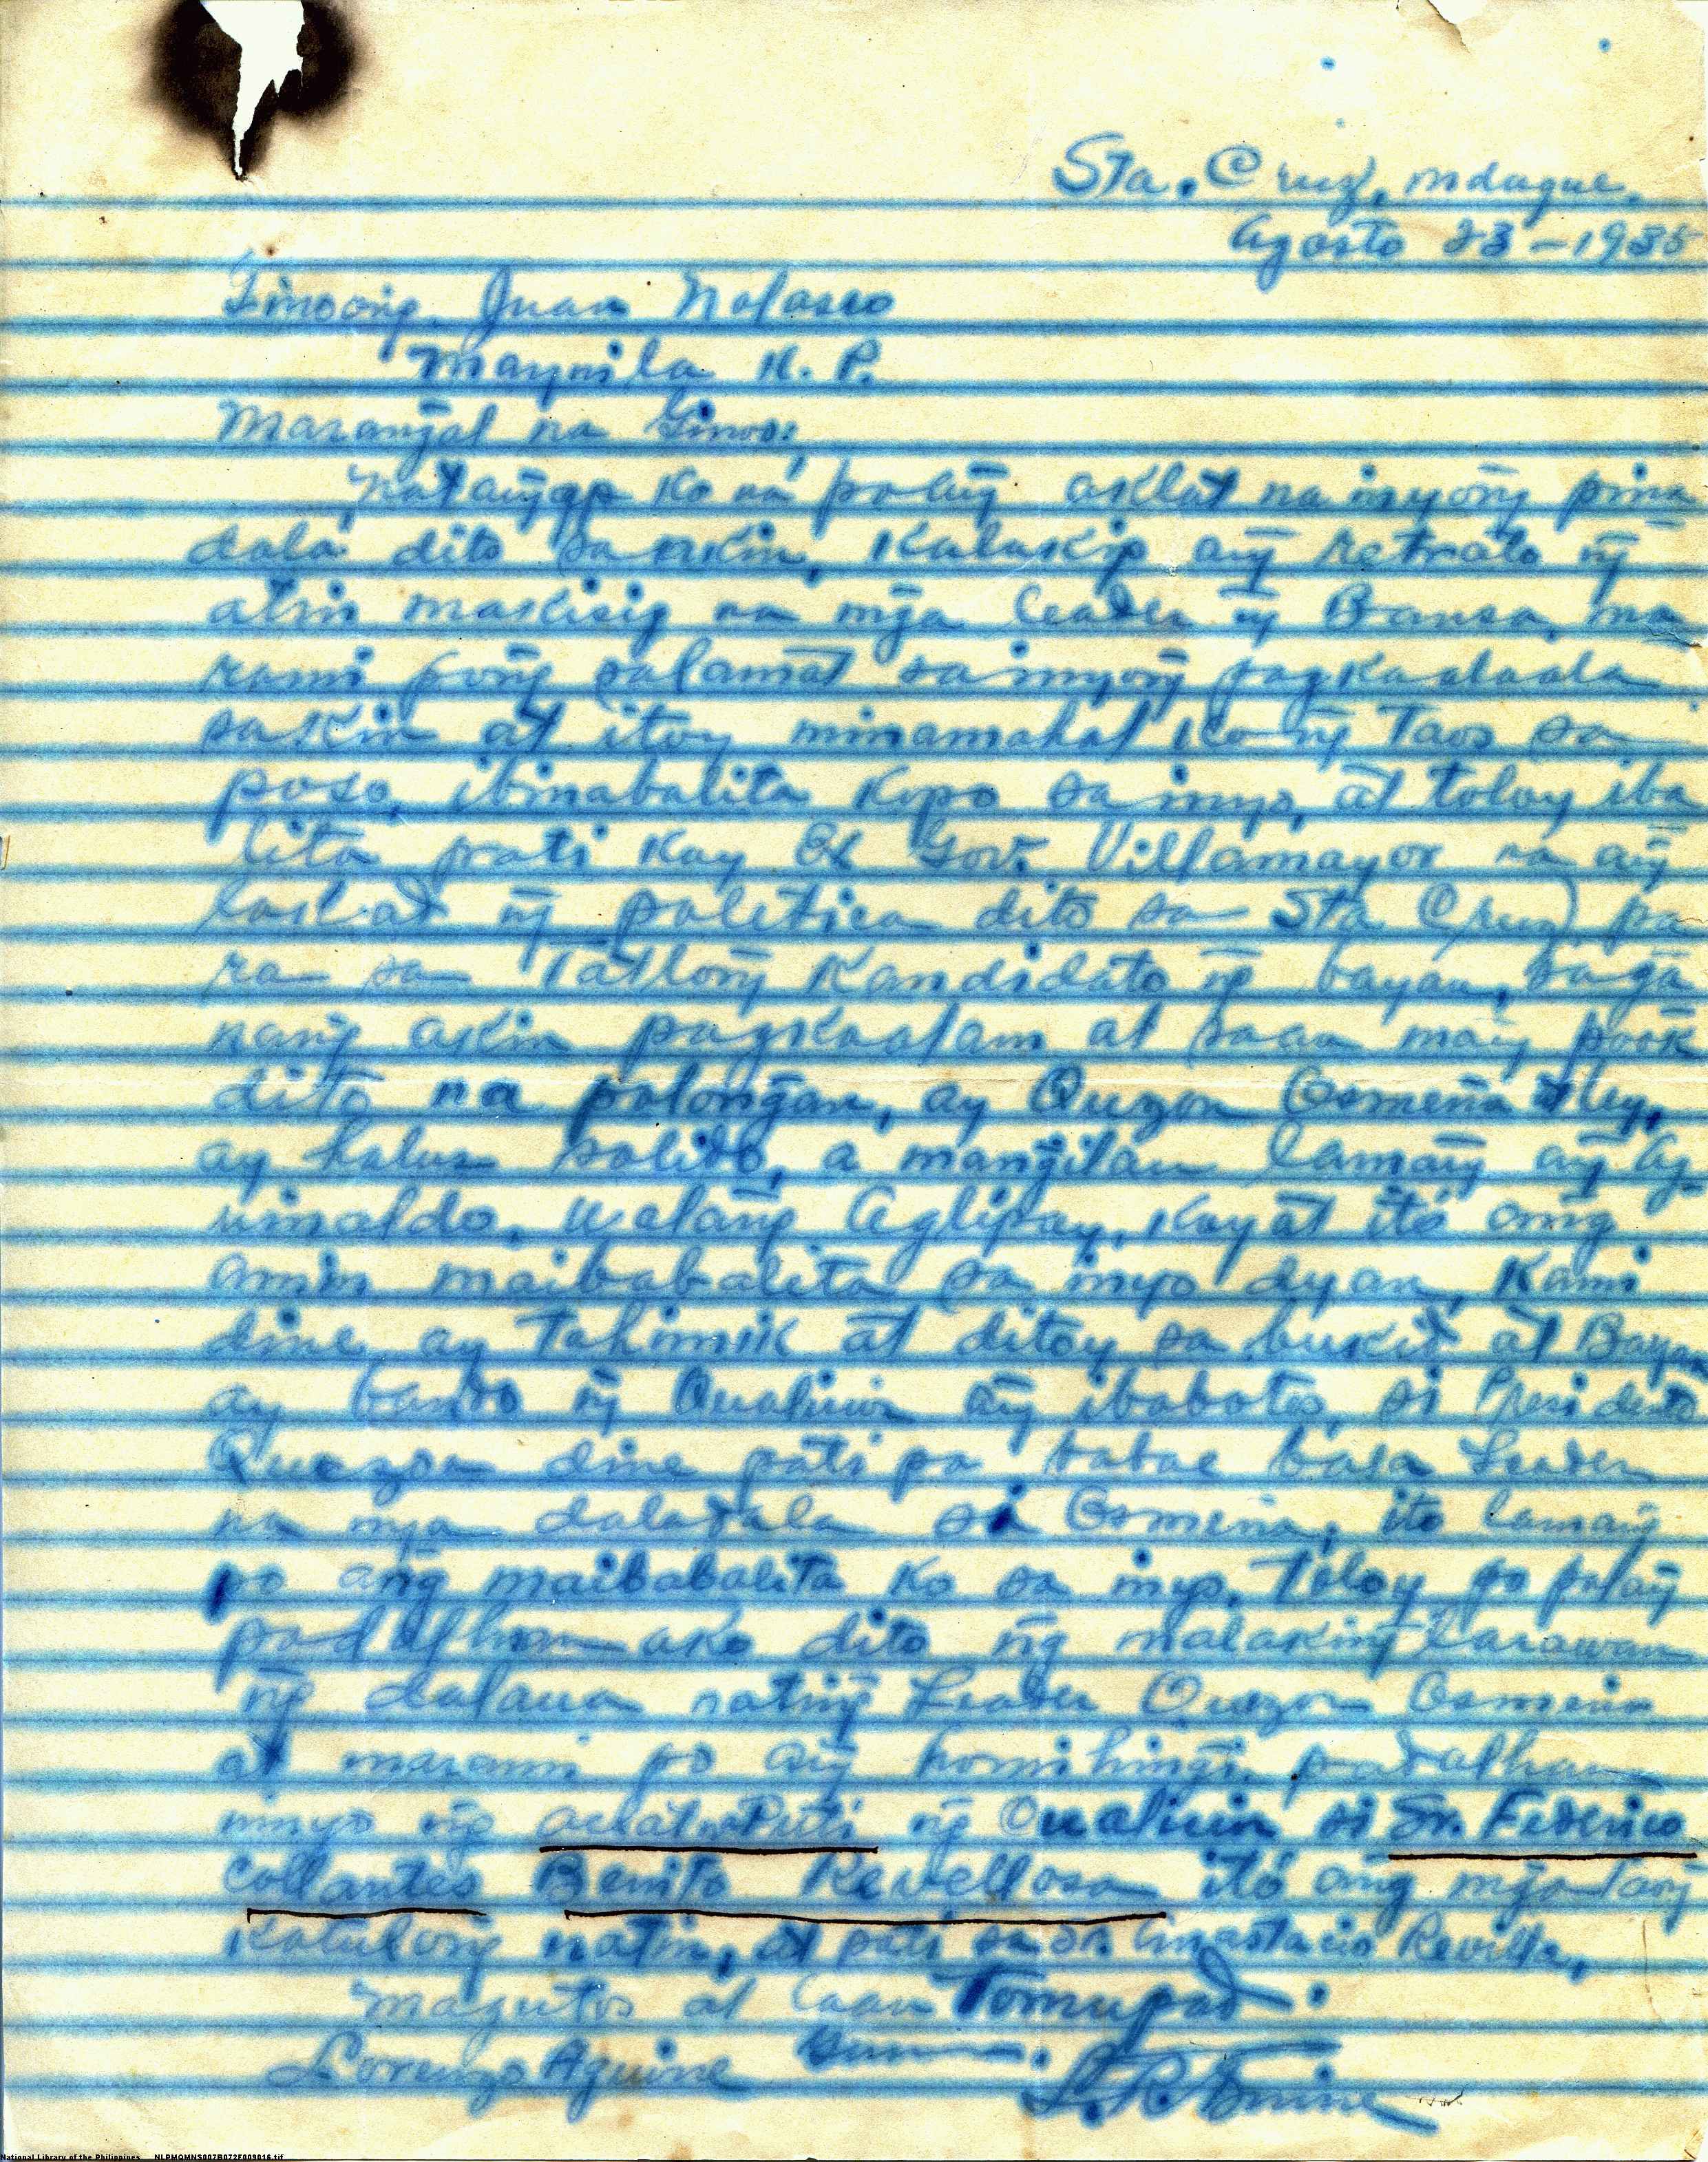 Sta. Cruz, mduque.
Agosto 23 - 1935
Ginoong Juan Nolasco
Maynila K. P.
Marangal na Ginoo:
Natanggap ko na po ang aklat na inyong pina
dala dito sa akin, kalakip ang retrato ng
atin makisig na mga Leader ng Bansa, ma
rami pong salamat sa inyong pagkaalaala
sakin at itoy minamahal ko ng Taos sa
poso, ibinabalita kopo sa inyo, at toloy iba
lita pati kay Ex Gov. Villamayor na ang
lagat ng poletica dito sa Sta Cruz, pa
ra sa Tatlong Kandidato ng bayan, baga
nang akin pagkaalam at saan mang pook
dito na polongan, ay Quezon Osmeña
ay halus solido, a mangilan lamang ang Ag
uinaldo, walang Aglipay, kayat ito ang
amin maibabalita sa inyo dyan, kami
dine ay Tahimik at ditoy sa bukid at Bayan
ay bando ng Qualicion ang ibobotos, si Presidente
Quezon dine pati pa babae basa Leader
na mga daladala si Osmeña, ito lamang
po ang maibabalita ko sa inyo, Toloy po palang
padalhan ako dito ng malaking larawan
ng dalawa nating Leader Quezon Osmeña
at marami po ang homihingi, padalhan
ninyo ng aclat na Puti ng Qualicion si Sr. Federico
Collantes Benito Revellosa ito ang mga taong
katulong natin, at pati sa Sr. Anastacio Revilla,
Magutos at laan Tomupad.
Lorenzo Aguirre